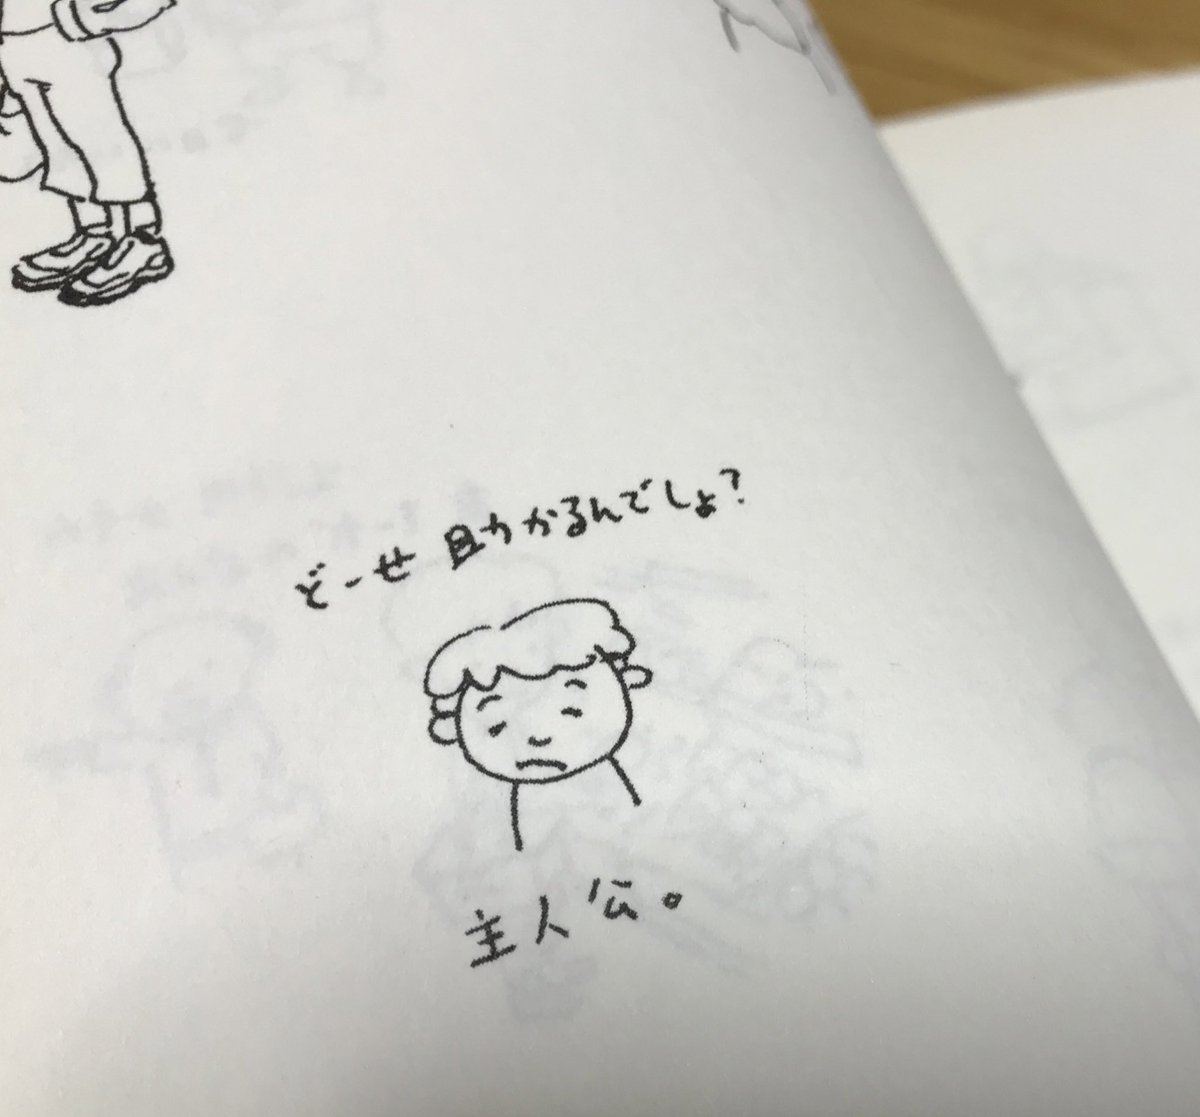 どーせ助かるんでしょ?
主人公。